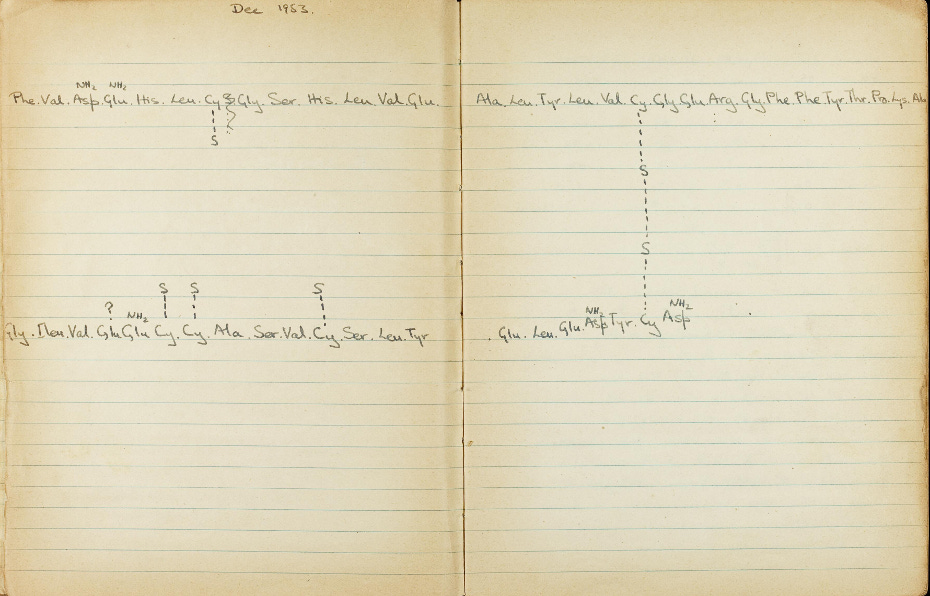 Dec 1953.
NH2 NH2
Phe. Val. Asp. Glu. His. Leu. Cy Gly. Ser. His. Leu. Val. Glu. Ala. Leu. Tyr. Leu. Val. Cy. Gly Glu. Arg. Gly. Phe. Phe Tyr. Thr. Pro. Lys. Ala
S
S
S
S S S
? NH2 NH2 NH2
Gly. Ileu. Val. Glu Glu Cy. Cy. Ala Ser. Val. Cy. Ser. Leu. Tyr . Glu. Leu. Glu. Asp Tyr. Cy Asp